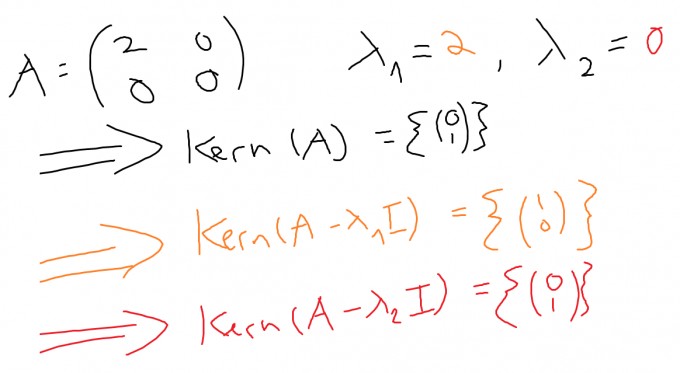 A = (2 0; 0 0) λ₁ = 2 , λ₂ = 0
⟹ Kern (A) = {(0; 1)}
⟹ Kern(A - λ₁I) = {(1; 0)}
⟹ Kern(A - λ₂I) = {(0; 1)}